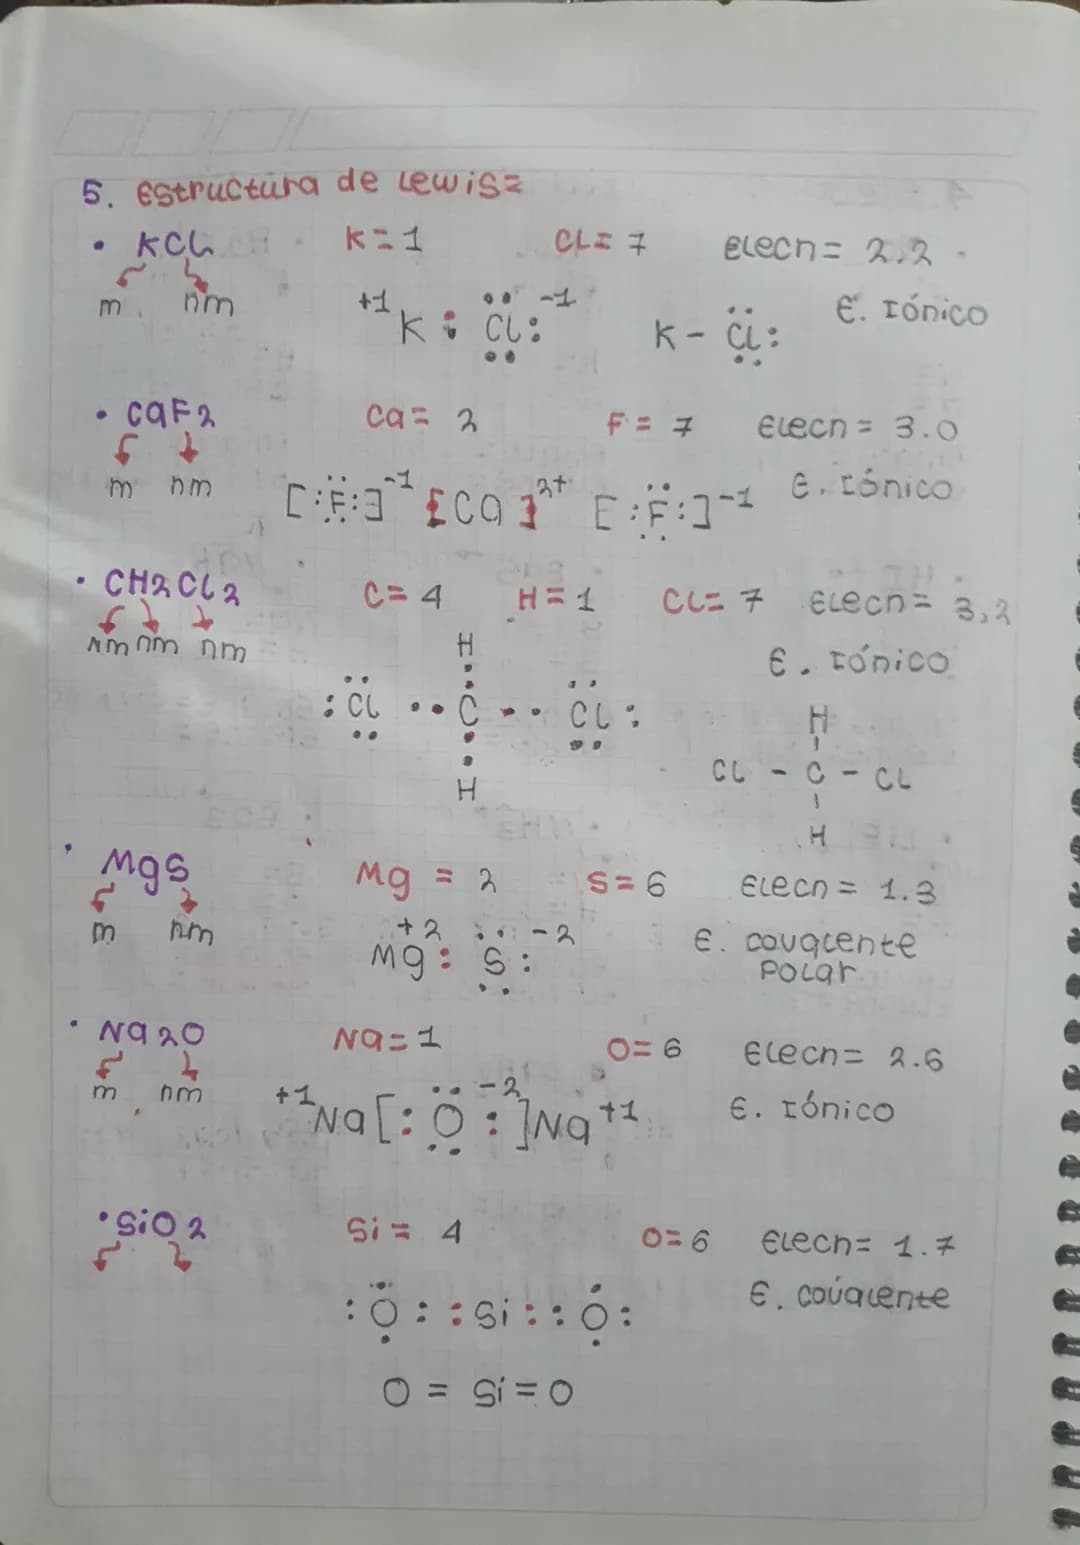 5. Estructura de Lewis=
• KCl K=1 CL= 7 Elecn= 2.2
m nm
+1 K : Cl: -1 K - Cl: E. Iónico
• CaF2 Ca= 2 F= 7 Elecn= 3.0
m nm
[:F:]-1 [Ca]2+ [:F:]-1 E. Iónico
• CH2Cl2 C= 4 H=1 CL= 7 Elecn= 3,2
nm nm nm
E. Iónico
H
:Cl ·· C ·· Cl:
H
H
CL - C - CL
H
• MgS Mg = 2 S=6 Elecn= 1.3
m nm
+2 Mg: S: -2 E. covalente
Polar
• Na2O Na=1 O=6 Elecn= 2.6
m nm
+1 Na[:O:]-2 Na+1 E. Iónico
• SiO2 Si= 4 O=6 Elecn= 1.7
:O: :Si: :O: E. covalente
O = Si = O